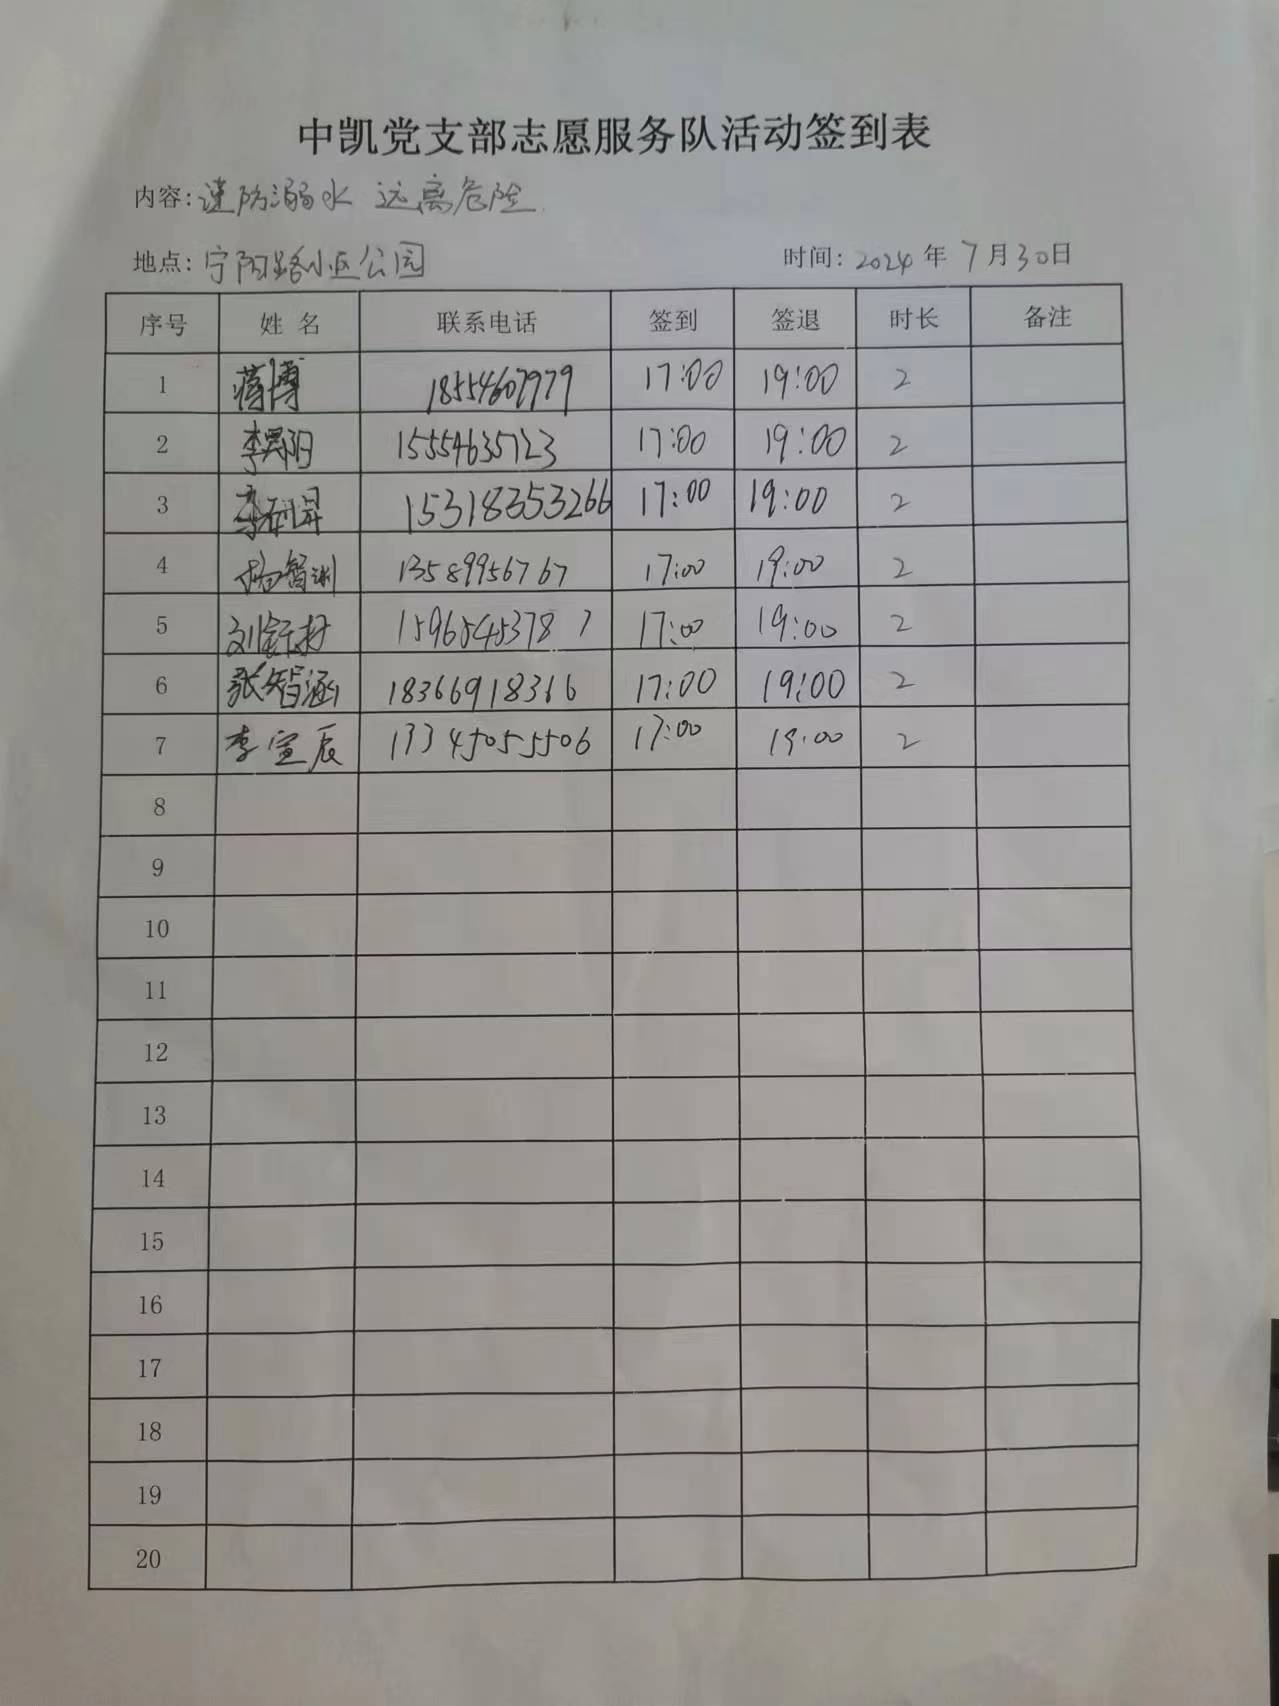 中凯党支部志愿服务队活动签到表
内容:谨防溺水 远离危险
地点:宁阳路小区公园 时间:2024年7月30日
序号 姓名 联系电话 签到 签退 时长 备注
1 蒋博 18554607979 17:00 19:00 2
2 15554635723 17:00 19:00 2
3 15318353266 17:00 19:00 2
4 杨智渊 13589956767 17:00 19:00 2
5 15965453787 17:00 19:00 2
6 张智涵 18366918366 17:00 19:00 2
7 李宣辰 13345055506 17:00 19:00 2
8
9
10
11
12
13
14
15
16
17
18
19
20